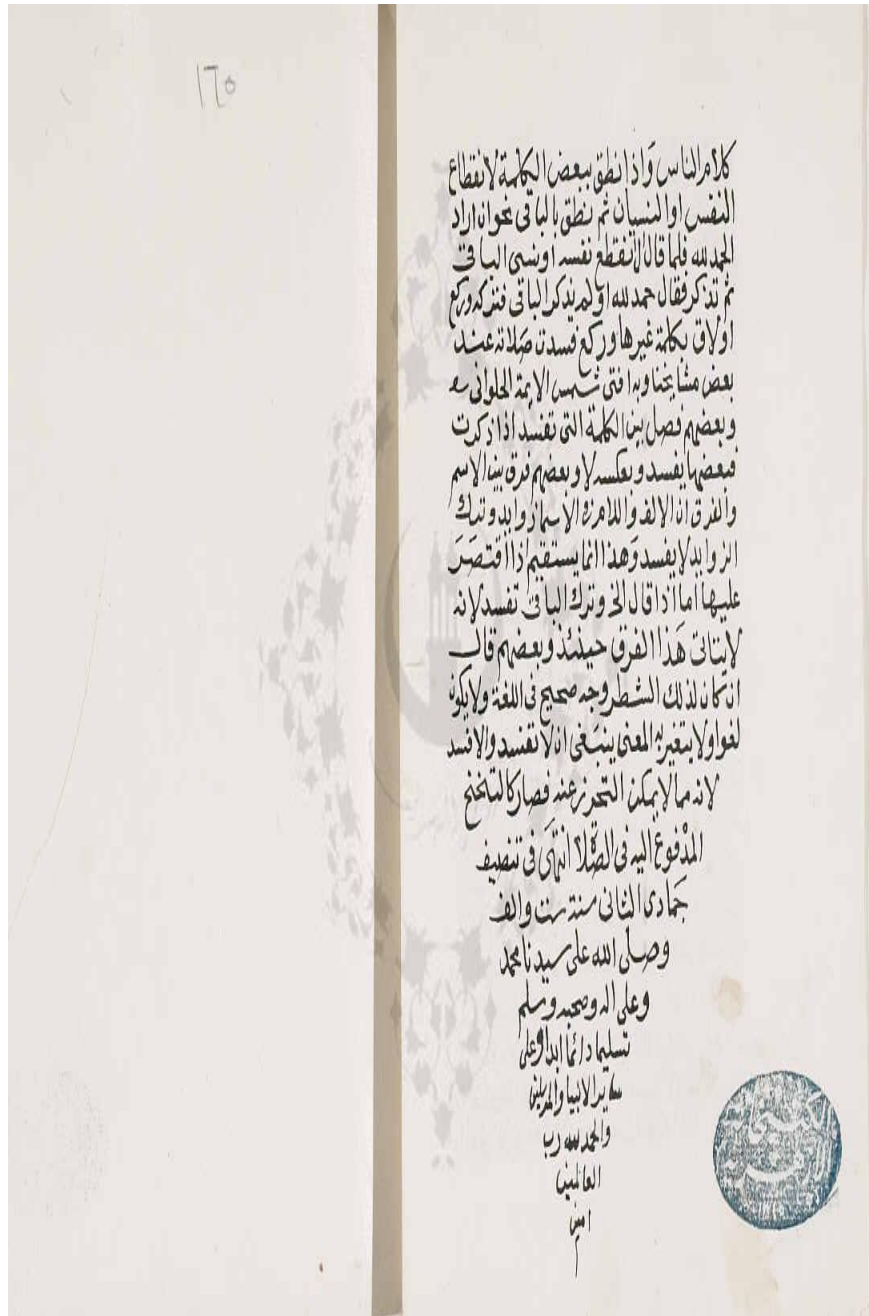 ١٦٥
كلام الناس وَاذا نطق ببعض الكلمة لانقطاع
النفس او النسيان ثم نطق بالباقى نحو ان اراد
الحمد لله فلما قال ال انقطع نفسه او نسى الباقى
ثم تذكر فقال حمد لله او لم يذكر الباقى فتركه وركع
او لاق بكلمة غيرها وركع فسدت صَلاته عند
بعض مشايخنا وبه افتى شمس الايمة الحلوانى
وبعضهم فصل بين الكلمة التى تفسد اذا ذكرت
فبعضها يفسد وبعكسه لا وبعضهم فرق بين الاسم
والفرق ان الالف واللام فى الاسماء زوايد وترك
الزوايد لا يفسد وَهذا انما يستقيم اذا اقتصَرَ
عليها اما اذا قال الخ وترك الباقى تفسد لانه
لا يتاتى هَذا الفرق حينئذ وبعضهم قال
ان كان لذلك الشطر وجه صحيح فى اللغة ولا يكون
لغوا ولا يتغير به المعنى ينبَغى ان لا تفسد والا فسد
لانه مما لا يمكن التحرز عنه فصار كالتنحنح
المدْفوع اليه فى الصَّلاة انتهَى فى تنصيف
جَمادى الثانى سنة ست والف
وصلى الله على سيدنا محمد
وعلى اله وصحبه وسلم
تسليما دائما ابدا وعلى
ساير الانبيا والمرسلين
والحمد لله رب
العالمين
امين